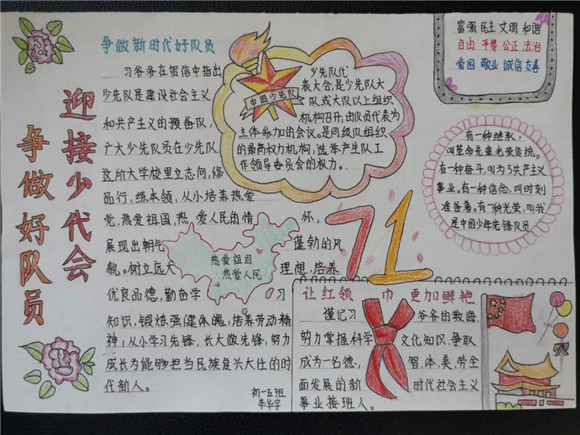 迎接少代会
争做好队员
争做新时代好队员
习爷爷在贺信中指出
少先队是建设社会主义
和共产主义的预备队,
广大少先队员在少先队
这所大学校里立志向,修
品行,练本领,从小培养热爱
党,热爱祖国,热爱人民的情怀,
展现出朝气蓬勃的风
貌。树立远大理想,培养
优良品德,勤奋学习
知识,锻炼强健体魄,培养劳动精
神,从小学习先锋,长大做先锋,努力
成长为能够担当民族复兴大任的时
代新人。
初一五班
热爱祖国
热爱人民
中国少先队
少先队代
表大会,是少先队大
队或大队以上组织
机构召开,由队员代表为
主体参加的会议。是同级队组织
的最高权力机构,选举产生队工
作领导委员会的权力。
富强 民主 文明 和谐
自由 平等 公正 法治
爱国 敬业 诚信 友善
有一种继承,
叫革命先辈光荣传统。
有一种奋斗,叫为了共产主义
事业。有一种信念,叫时刻
准备着。有一种光荣,叫我
是中国少年先锋队员
71
让红领巾更加鲜艳
谨记习爷爷的教诲,
努力掌握科学文化知识,争取
成为一名德,智、体、美、劳全
面发展的新时代社会主义
事业接班人。